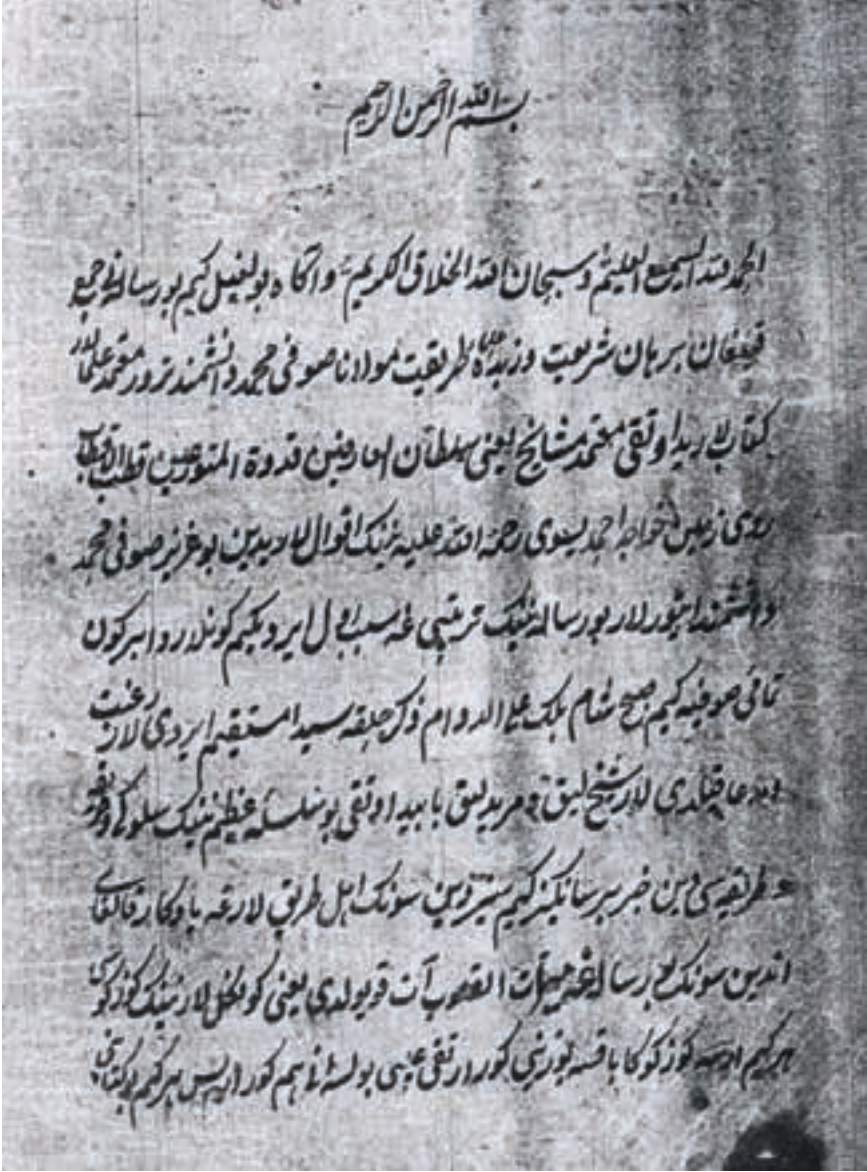 بسم الله الرحمن الرحيم
الحمد لله السميع العليم و سبحان الله الخلاق الكريم و آگاه بولغيل كيم بو رساله نى جمع
قيلغان برهان شريعت و زبدهٔ طريقت مولانا صوفى محمد دانشمند ترور معتمد علمالار
كتاب لاريدا و تقى معتمد مشايخ يعنى سلطان العارفين قدوة المتورعين قطب الاقطاب
روى زمين خواجه احمد يسوى رحمة الله عليه ننيك اقوال لاريدين بو عزيز صوفى محمد
دانشمند ايتورلار بو رساله ننيك ترتيبى غه سبب اول ايرديكيم كونلاردا بر كون
صوفيه كيم صبح شام بلك على الدوام ذكر حلقه سيدا مستقيم ايردى لار رغبت
و ادعا قيلدى لار شيخ ليق و مريدليق بابيدا و تقى بو سلسلهٔ عظيم ننيك سلوكى
و طريقه سى دين خبر برسانكيز كيم سيزدين سونك اهل طريق لارغه يادكار قالغاى
اندين سونك بو رساله غه مرآت القلوب آت قويولدى يعنى كونكل لار ننيك كوزكوسى
هر كيم كوزكوكا باقسه يوزينى كورار تقى عيبى بولسه انى هم كورار پس هر كيم بو كتابنى